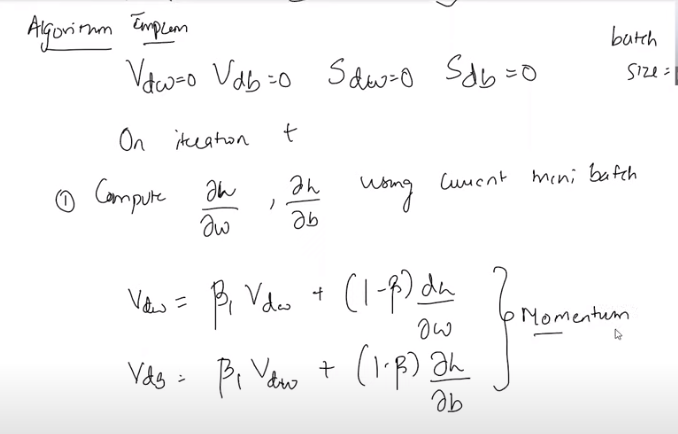 Algorithm Implem
batch
size =
V_dw=0 V_db=0 S_dw=0 S_db=0
On iteration t
① Compute ∂h/∂w , ∂h/∂b using current mini batch
V_dw = β₁ V_dw + (1-β) dh/∂w
Momentum
V_db = β₁ V_dw + (1-β) ∂h/∂b